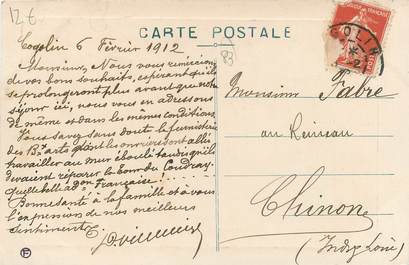 12€
CARTE POSTALE
83
COGOLIN
Cogolin 6 Février 1912
Monsieur, Nous vous remercions
de vos bons souhaits, espérant qu'ils
se prolongeront plus avant que notre
séjour ici, nous vous en adressons
de même et dans les mêmes conditions
Vous savez sans doute la fumisterie
des Bx arts quand les ouvriers sont allés
travailler au mur éboulé tandis qu'ils
devaient réparer la tour du Coudray,
quelle belle adon Française!
Bonne santé à la famille et à vous
l'expression de nos meilleurs
sentiments
Monsieur Fabre
au
Chinon
(Indre Loire)